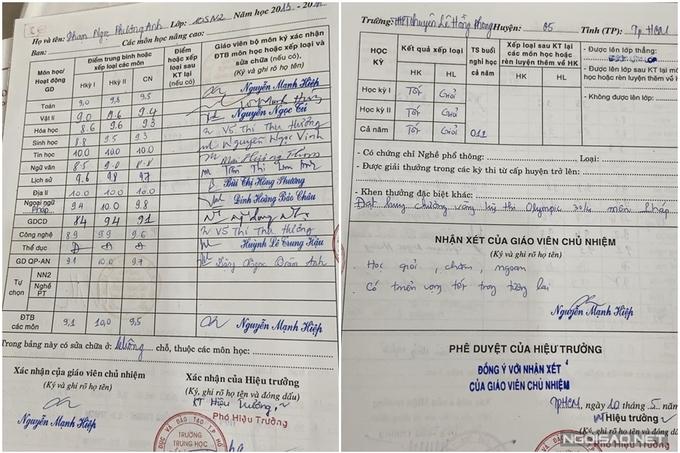 Họ và tên: Phan Ngọc Phương Anh Lớp: 10SN2 Năm học 20
Các môn học nâng cao:
Môn học/ Hoạt động GD
Điểm trung bình hoặc xếp loại các môn
Hkỳ I Hkỳ II CN
Điểm hoặc xếp loại sau KT lại (nếu có)
Giáo viên bộ môn ký xác nhận ĐTB môn học hoặc xếp loại và sửa chữa (nếu có)
(Ký và ghi rõ họ tên)
Toán 9,0 9.8 9.5 Nguyễn Mạnh Hiệp
Vật lí 9.0 9.6 9.4 Nguyễn Ngọc Cū
Hóa học 8.6 9.6 9.3 Võ Thị Thu Hường
Sinh học 8.8 9.5 9.3 Nguyễn Ngọc Vinh
Tin học 10.0 10.0 10.0
Ngữ văn 8.5 9.0 8.8 Trần Thị
Lịch sử 9.6 9.8 9.7 Bùi Chị Hồng Phương
Địa lí 10.0 10.0 10.0 Đinh Hoàng Bảo Châu
Ngoại ngữ Pháp 9.4 10.0 9.8
GDCD 8.4 9.4 9.1
Công nghệ 8.9 9.9 9.6 Võ Thị Thu Hường
Thể dục Đ Đ Đ Huỳnh Lê Trung Hậu
GD QP-AN 9.1 10.0 9.7 Đoàn Anh
Tự chọn
NN2
Nghề PT
ĐTB các môn 9,1 10,0 9,5 Nguyễn Mạnh Hiệp
Trong bảng này có sửa chữa ở: không chỗ, thuộc các môn học:
Xác nhận của giáo viên chủ nhiệm
(Ký, ghi rõ họ tên)
Nguyễn Mạnh Hiệp
Xác nhận của Hiệu trưởng
(Ký, ghi rõ họ tên và đóng dấu)
KT Hiệu trưởng
Phó Hiệu Trưởng
TRƯỜNG
TRUNG HỌC
Trường: THPT chuyên Lê Hồng Phong Huyện: 05 Tỉnh (TP): Tp HCM
HỌC KỲ
Kết quả xếp loại
HK HL
TS buổi nghỉ học cả năm
Xếp loại sau KT lại các môn học hoặc rèn luyện thêm về HK
HK HL
Học kỳ I Tốt Giỏi
Học kỳ II Tốt Giỏi
Cả năm Tốt Giỏi 01
- Được lên lớp thẳng:
- Được lên lớp sau KT lại mô
học hoặc rèn luyện thêm về H
- Không được lên lớp:
- Có chứng chỉ Nghề phổ thông: Loại:
- Được giải thưởng trong các kỳ thi từ cấp huyện trở lên:
- Khen thưởng đặc biệt khác:
Đạt huy chương vàng kỳ thi Olympic 30/4 môn Pháp
NHẬN XÉT CỦA GIÁO VIÊN CHỦ NHIỆM
(Ký và ghi rõ họ tên)
Học giỏi, chăm, ngoan
Có triển vọng tốt trong tương lai
Nguyễn Mạnh Hiệp
PHÊ DUYỆT CỦA HIỆU TRƯỞNG
ĐỒNG Ý VỚI NHẬN XÉT
CỦA GIÁO VIÊN CHỦ NHIỆM
TpHCM, ngày 20 tháng 5
Hiệu trưởng
(Ký, ghi rõ họ tên và đóng dấu)
NGOISAO.NET